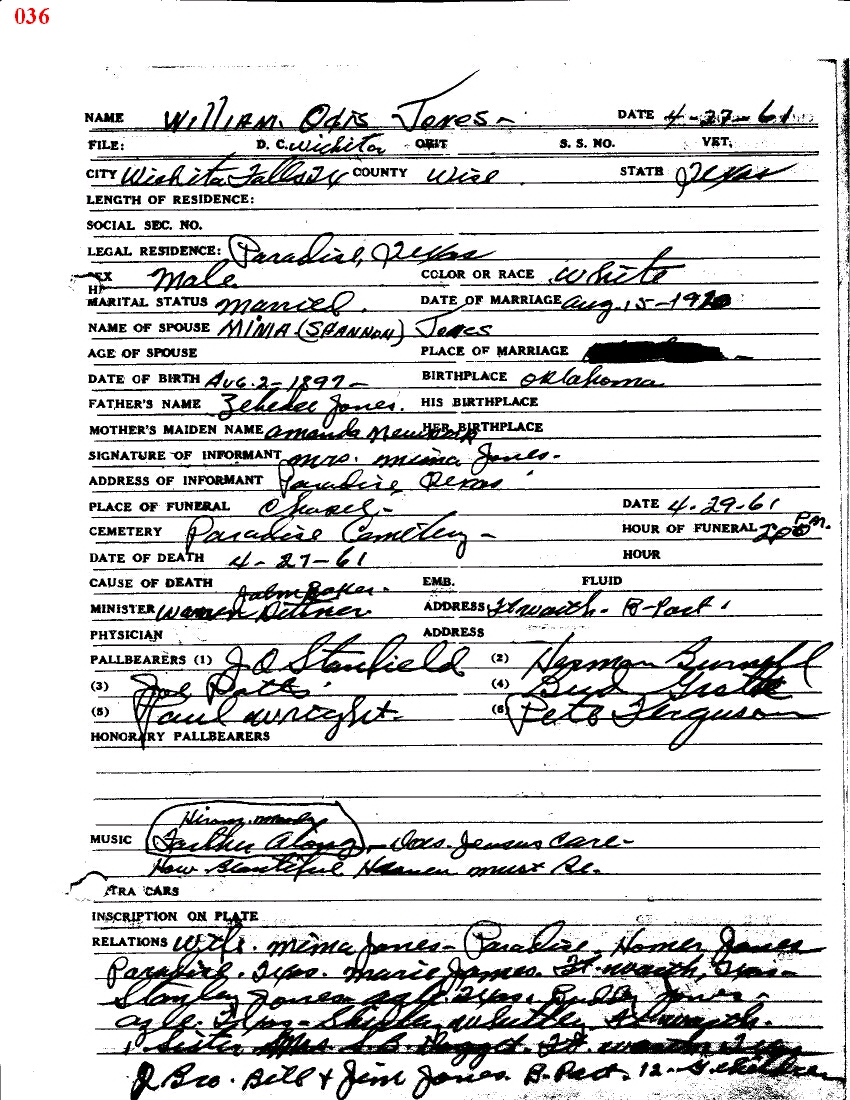 036
NAME WilliAM Odis Jones - DATE 4-27-61
FILE: D.C. Wichita OBIT S. S. NO. VET.
CITY Wichita Falls Tx COUNTY Wise STATE Texas
LENGTH OF RESIDENCE:
SOCIAL SEC. NO.
LEGAL RESIDENCE: Paradise, Texas
SEX Male COLOR OR RACE White
MARITAL STATUS Married. DATE OF MARRIAGE Aug. 15-1920
NAME OF SPOUSE MIMA (SHANNON) Jones
AGE OF SPOUSE PLACE OF MARRIAGE
DATE OF BIRTH Aug. 2-1897- BIRTHPLACE Oklahoma
FATHER'S NAME Zebedee Jones. HIS BIRTHPLACE
MOTHER'S MAIDEN NAME Amanda HER BIRTHPLACE
SIGNATURE OF INFORMANT Mrs. Mima Jones-
ADDRESS OF INFORMANT Paradise Texas
PLACE OF FUNERAL Chapel- DATE 4-29-61
CEMETERY Paradise Cemetery - HOUR OF FUNERAL 2:00 P.M.
DATE OF DEATH 4-27-61 HOUR
CAUSE OF DEATH EMB. FLUID
John Baker.
MINISTER Warren ADDRESS Ft Worth - B-Port
PHYSICIAN ADDRESS
PALLBEARERS (1) J O Stanfield (2) Herman
(3) Joe Potts (4) Bud
(5) Paul Wright. (6) Pete Ferguson
HONORARY PALLBEARERS
MUSIC Farther Along - Does Jensus Care-
How Beautiful Heaven must Be.
XTRA CARS
INSCRIPTION ON PLATE
RELATIONS Wife. Mima Jones - Paradise, Homer Jones
Paradise. Texas. Marie James. Ft. Worth, Texas-
Stanley Jones Azle Texas. Buddy Jones-
Azle. Texas - Shirley Whitley Ft Worth.
1 Sister Mrs. S.B. Ft. Worth Texas
2 Bro. Bill & Jim Jones. B-Port. 12- G. Children